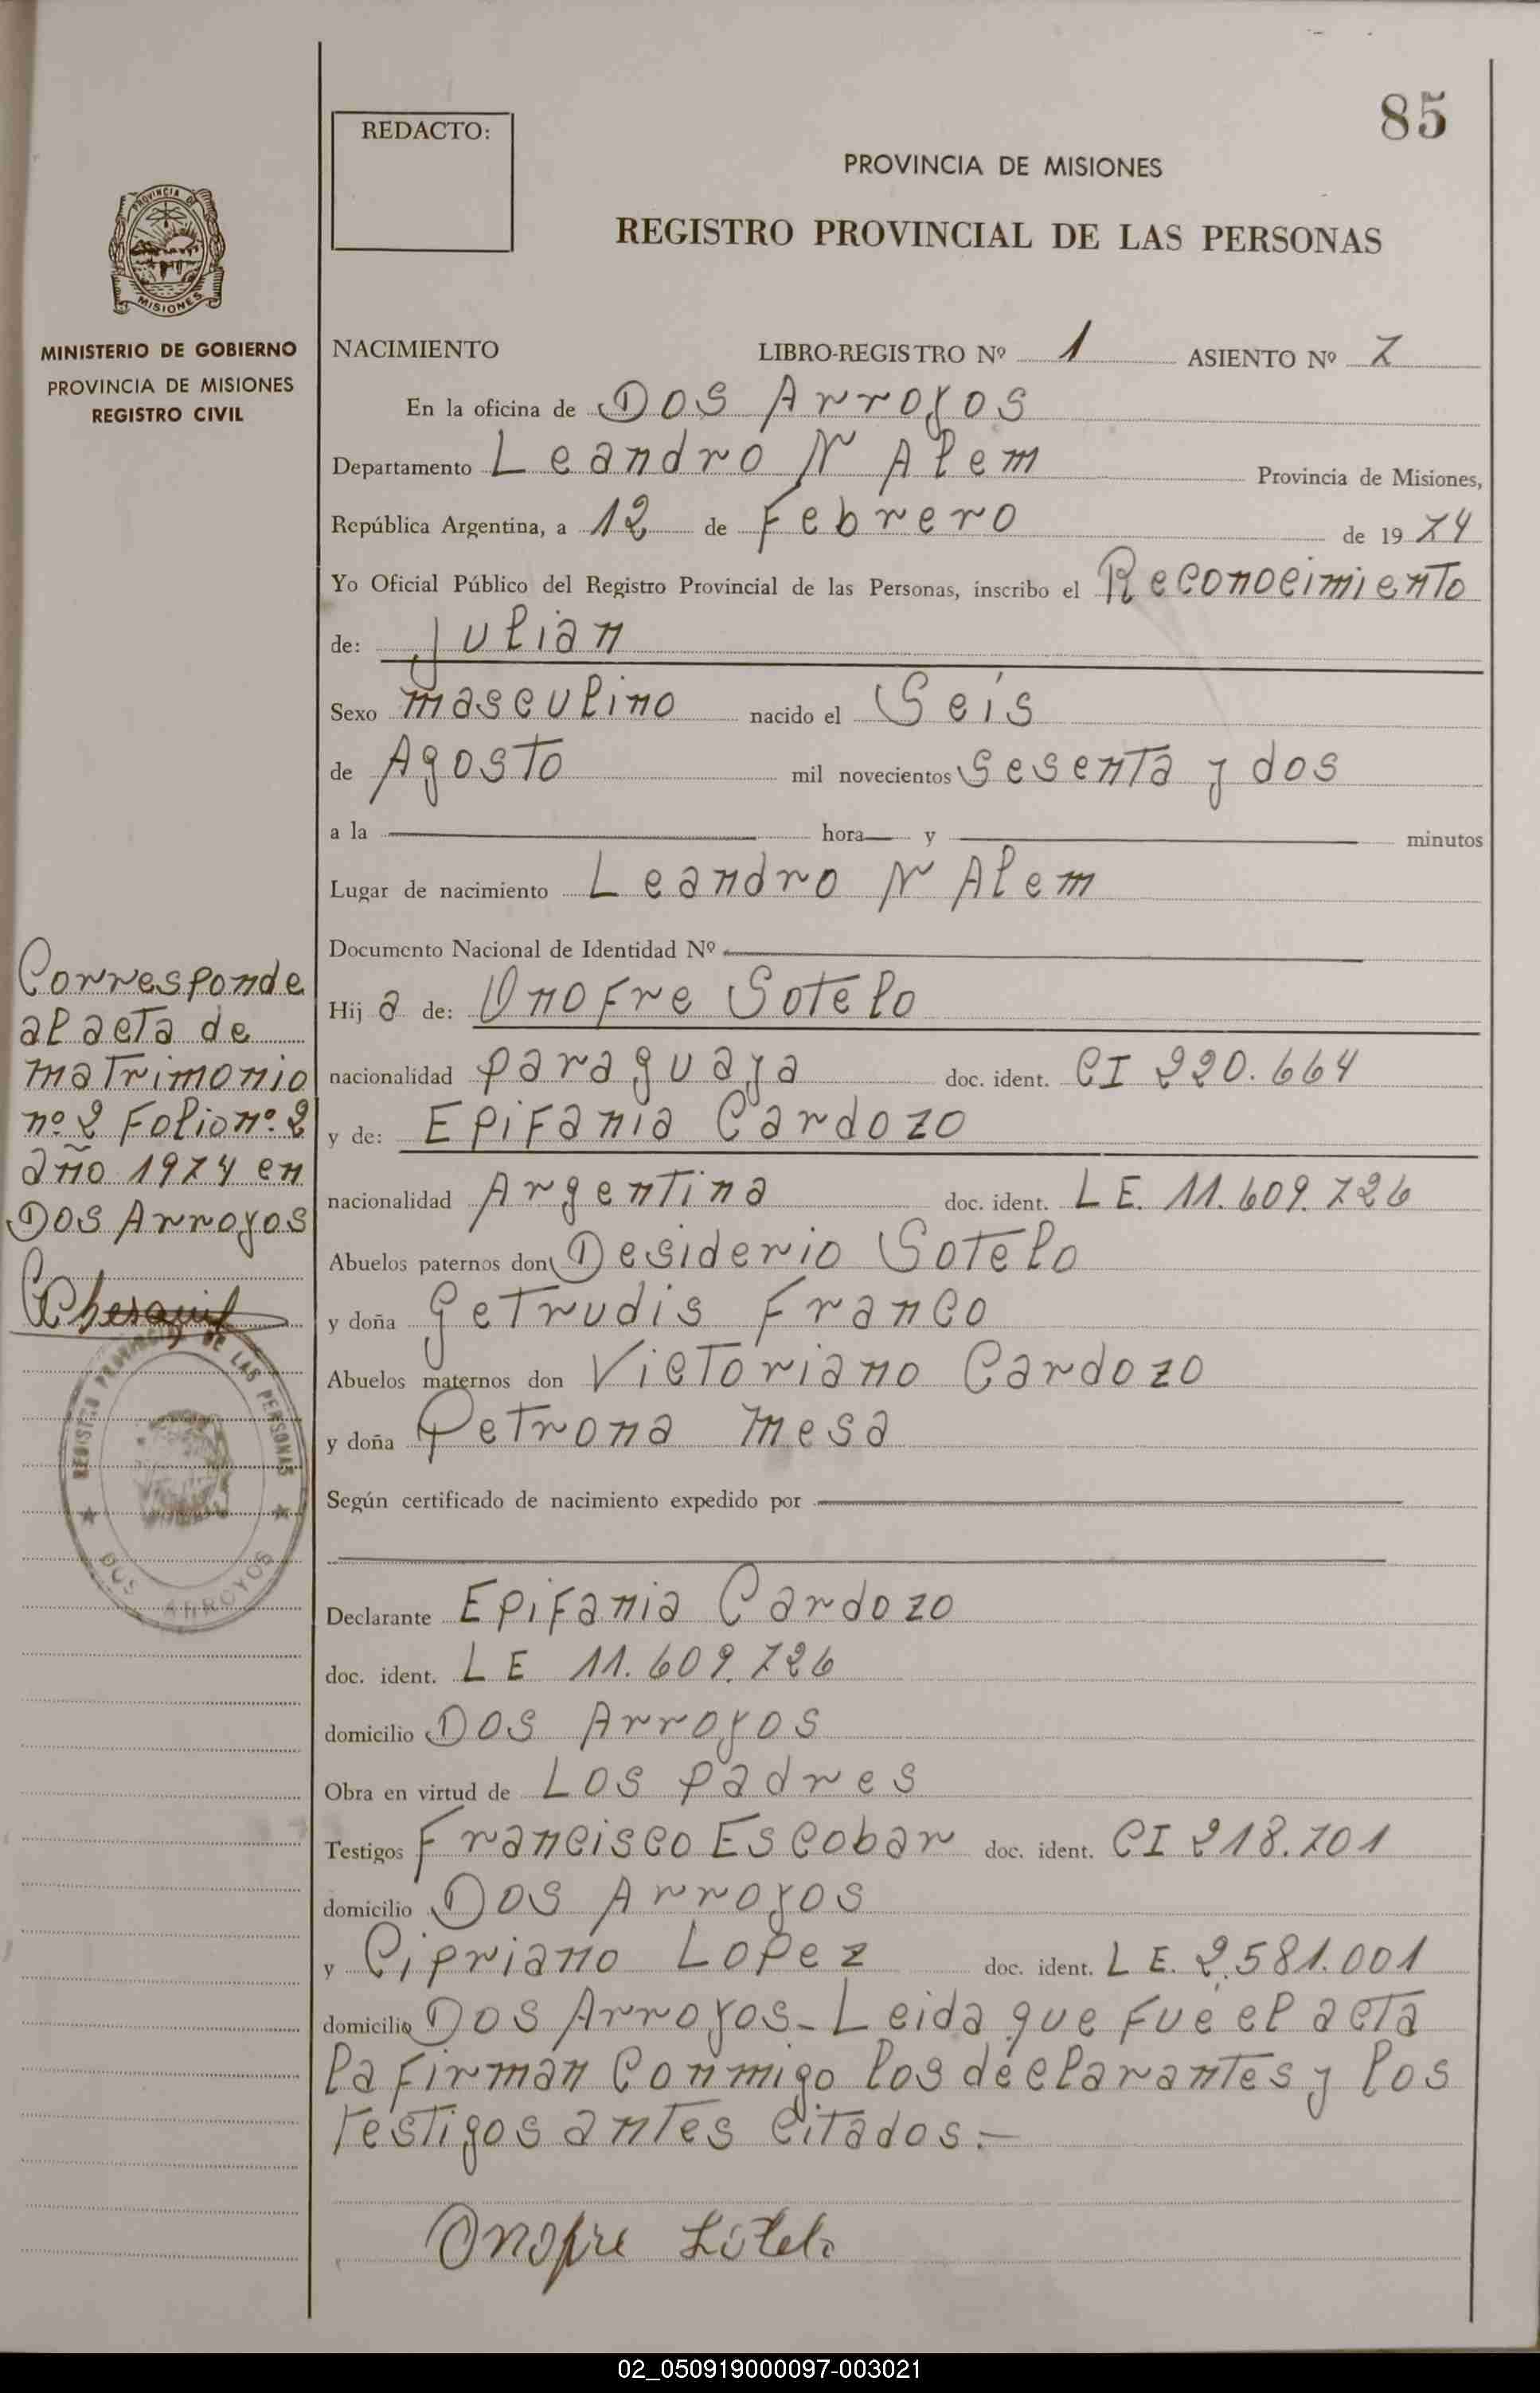 85
REDACTO:
PROVINCIA DE MISIONES
REGISTRO PROVINCIAL DE LAS PERSONAS
PROVINCIA DE
MISIONES
MINISTERIO DE GOBIERNO
PROVINCIA DE MISIONES
REGISTRO CIVIL
NACIMIENTO LIBRO-REGISTRO Nº 1 ASIENTO Nº 7
En la oficina de Dos Arroyos
Departamento Leandro N Alem Provincia de Misiones,
República Argentina, a 12 de Febrero de 1974
Yo Oficial Público del Registro Provincial de las Personas, inscribo el Reconocimiento
de: Julian
Sexo masculino nacido el Seis
de Agosto mil novecientos Sesenta y dos
a la hora y minutos
Lugar de nacimiento Leandro N Alem
Documento Nacional de Identidad Nº
Hij a de: Onofre Sotelo
nacionalidad paraguaya doc. ident. CI 220.664
y de: Epifania Cardozo
nacionalidad Argentina doc. ident. LE. 11.609.726
Abuelos paternos don Desiderio Sotelo
y doña Getrudis Franco
Abuelos maternos don Victoriano Cardozo
y doña Petrona Mesa
Según certificado de nacimiento expedido por
Declarante Epifania Cardozo
doc. ident. LE 11.609.726
domicilio Dos Arroyos
Obra en virtud de Los padres
Testigos Francisco Escobar doc. ident. CI 218.701
domicilio Dos Arroyos
y Cipriano Lopez doc. ident. LE. 2.581.001
domicilio Dos Arroyos- Leida que fué el acta
la firman conmigo los declarantes y los
testigos antes citados.-
Onofre Sotelo
Corresponde
al acta de
matrimonio
nº 2 Folio nº 2
año 1974 en
Dos Arroyos
REGISTRO PROVINCIAL DE LAS PERSONAS
DOS ARROYOS
02_050919000097-003021